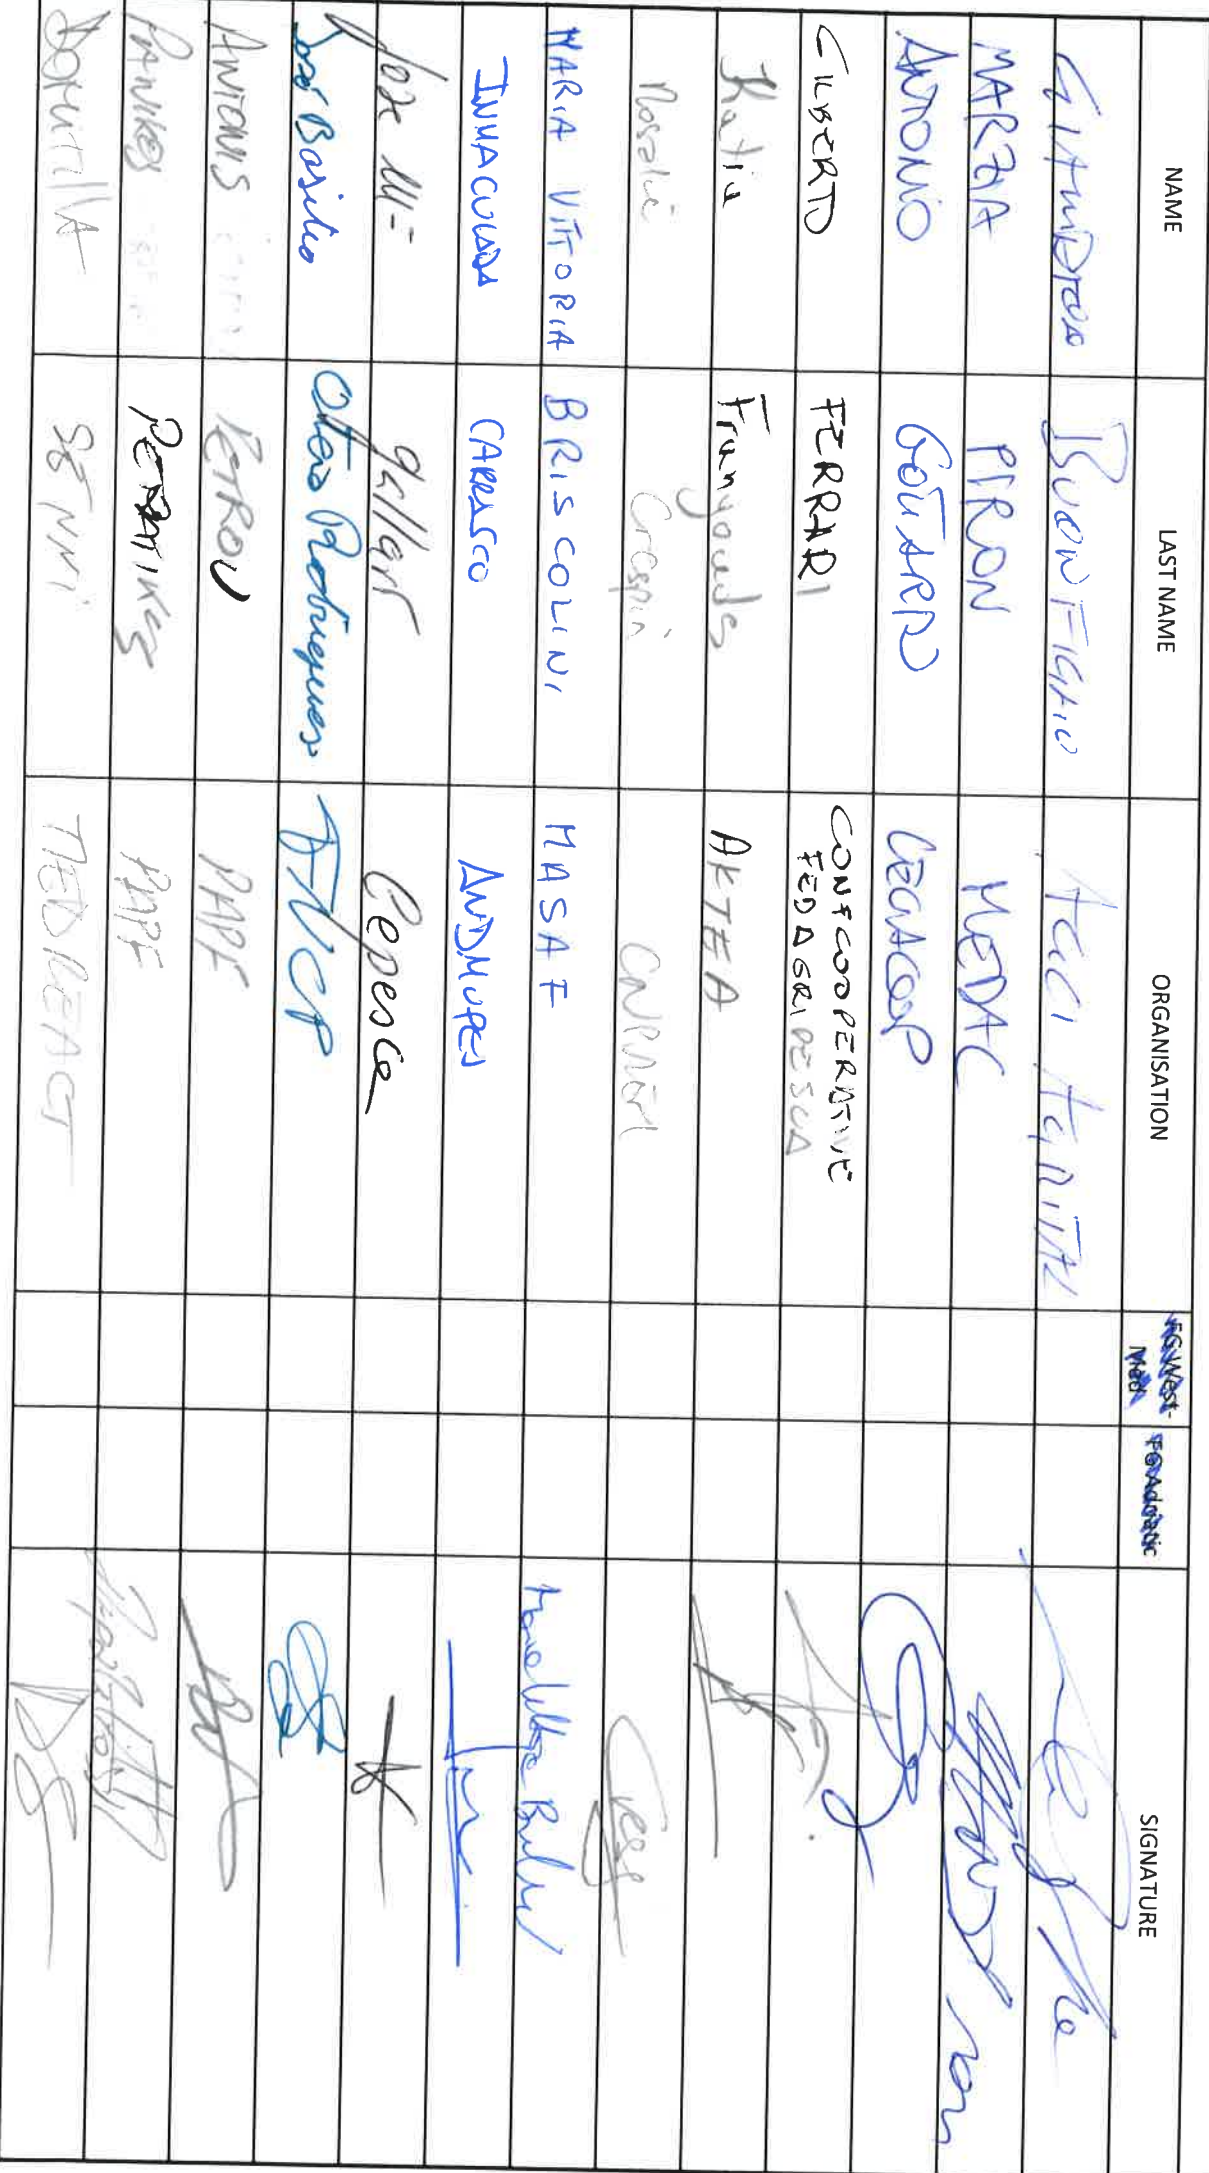 NAME LAST NAME ORGANISATION FG West-Med FG Adriatic SIGNATURE
BUONFIGLIO AGCI AGRITAL
MARZIA PIRON MEDAC
ANTONIO GOTTARDO LEGACOOP
GILBERTO FERRARI CONFCOOPERATIVE
FEDAGRIPESCA
Katia Frangoudes AKTEA
Rosalie Crespin CNPMEM
MARIA VITTORIA BRISCOLINI MASAF
INMACULADA CARRASCO ANDMUPES
gallart Cepesca
José Basilio Otero Rodriguez FNCP
ANTONIS PETROU PAPF
PAPF
DOMITILLA SENNI MEDREACT